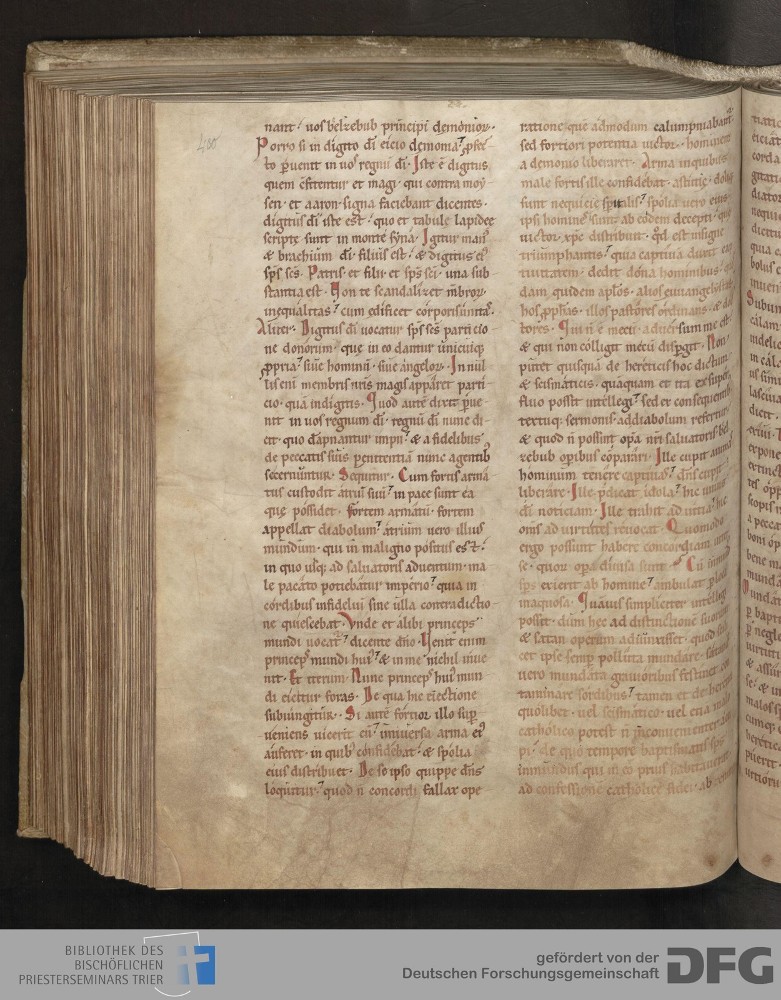 400
nant᷑ uos belzebub principi demonior̄.
Porro si in digito d̄i eicio demonia? ꝓfec
to ꝑuenit in uos regnū d̄i. Iste ē digitus
quem c̄fitentur et magi. qui contra moy
sen. et aaron. signa faciebant dicentes.
digitus d̄i iste est. quo et tabule lapidee
scripte sunt in monte syna. Igitur man᷒
& brachium d̄i. filius est. & digitus ei᷒
sp̄s sc̄s. Patris. et filii. et sp̄s sc̄i. una sub
stantia est. Non te scandalizet mēbror̄
inequalitas? cum edificet corporis unitas.
Aliter. Digitus d̄i uocatur sp̄s sc̄s parti cio
ne donorum. que in eo dantur unicuiq;
ꝓpria? siue hominū. siue angelor̄. In nul
lis eni membris nr̄is magis apparet parti
cio. quā in digitis. Quod autē dixit ꝑue
nit in uos regnum d̄i. regnū d̄i nunc di
cit. quo dāpnantur impii? & a fidelibus
de peccatis suis penitentiā nunc agentib᷒
secernuntur. Sequitur. Cum fortis arma
tus custodit atriū suū? in pace sunt ea
que possidet. fortem armatū. fortem
appellat diabolum? atrium uero illius
mundum. qui in maligno positus est.
in quo usq; ad saluatoris aduentum. ma
le pacato potiebatur imperio? quia in
cordibus infideliū sine ulla contradictio
ne quiescebat. Vnde et alibi princeps
mundi uocat᷑? dicente dn̄o. Uenit enim
princeps mundi hui᷒? & in me nichil inue
nit. Et iterum. Nunc princeps hui᷒ mun
di eicitur foras. De qua hic eiectione
subiungitur. Si autē fortior illo suꝑ
ueniens uicerit eū? uniuersa arma ei᷒
auferet. in quib᷒ confidebat. & spolia
eius distribuet. De se ipso quippe dn̄s
loquitur? quod n̄ concordi fallax ope
ratione que admodum calumpniabant᷑
sed fortiori potentia uictor. hominem
a demonio liberaret. Arma in quibus
male fortis ille confidebat. astutie. doli
sunt nequicie sp̄ualis? spolia uero eius
ipsi homines sunt ab eodem decepti. que
uictor xp̄c distribuit. qd̄ est insigne
triumphantis? quia captiuā duxit cap
tiuitatem. dedit dona hominibus. quos
dam quidem apl̄os. alios euuangelistas
hos ꝓph̄as. illos pastores ordinans. & doc
tores. Qui n̄ ē mecū. aduersum me est.
& qui non colligit mecū dispgit. Non
putet quisquā de hereticis hoc dictum
& scismaticis. quāquam et ita ex super
fluo possit intellegi? sed ex consequentib᷒
textuq; sermonis. ad diabolum refertur.
& quod n̄ possint opa nr̄i saluatoris bel
zebub oꝑibus cōparari. Ille cupit animas
hominum tenere captiuas? dn̄s cupit
liberare. Ille p̄dicat idola? hic unius
d̄i noticiam. Ille trahit ad uitia? hic
om̄s ad uirtutes reuocat. Quomodo
ergo possunt habere concordiam inter
se. quor̄ opa diuisa sunt? Cū inmund᷒
sp̄s exierit ab homine? ambulat ꝑ loca
inaquosa. Quāuis simpliciter intellegi
posset. dn̄m hec ad distinctionē suorum
& satan operum adiunxisset. quod scili
cet ipse semꝑ polluta mundare. satanas
uero mundata grauioribus festinet con
taminare sordibus? tamen et de heretico
quolibet. uel scismatico. uel etia malo
catholico potest n̄ incōuenienter acci
pi. de quo tempore baptismatis sp̄s
inmundus qui in eo prius habitauerat
ad confessionē catholice fidei. ab
BIBLIOTHEK DES
BISCHÖFLICHEN
PRIESTERSEMINARS TRIER
gefördert von der
Deutschen Forschungsgemeinschaft
DFG